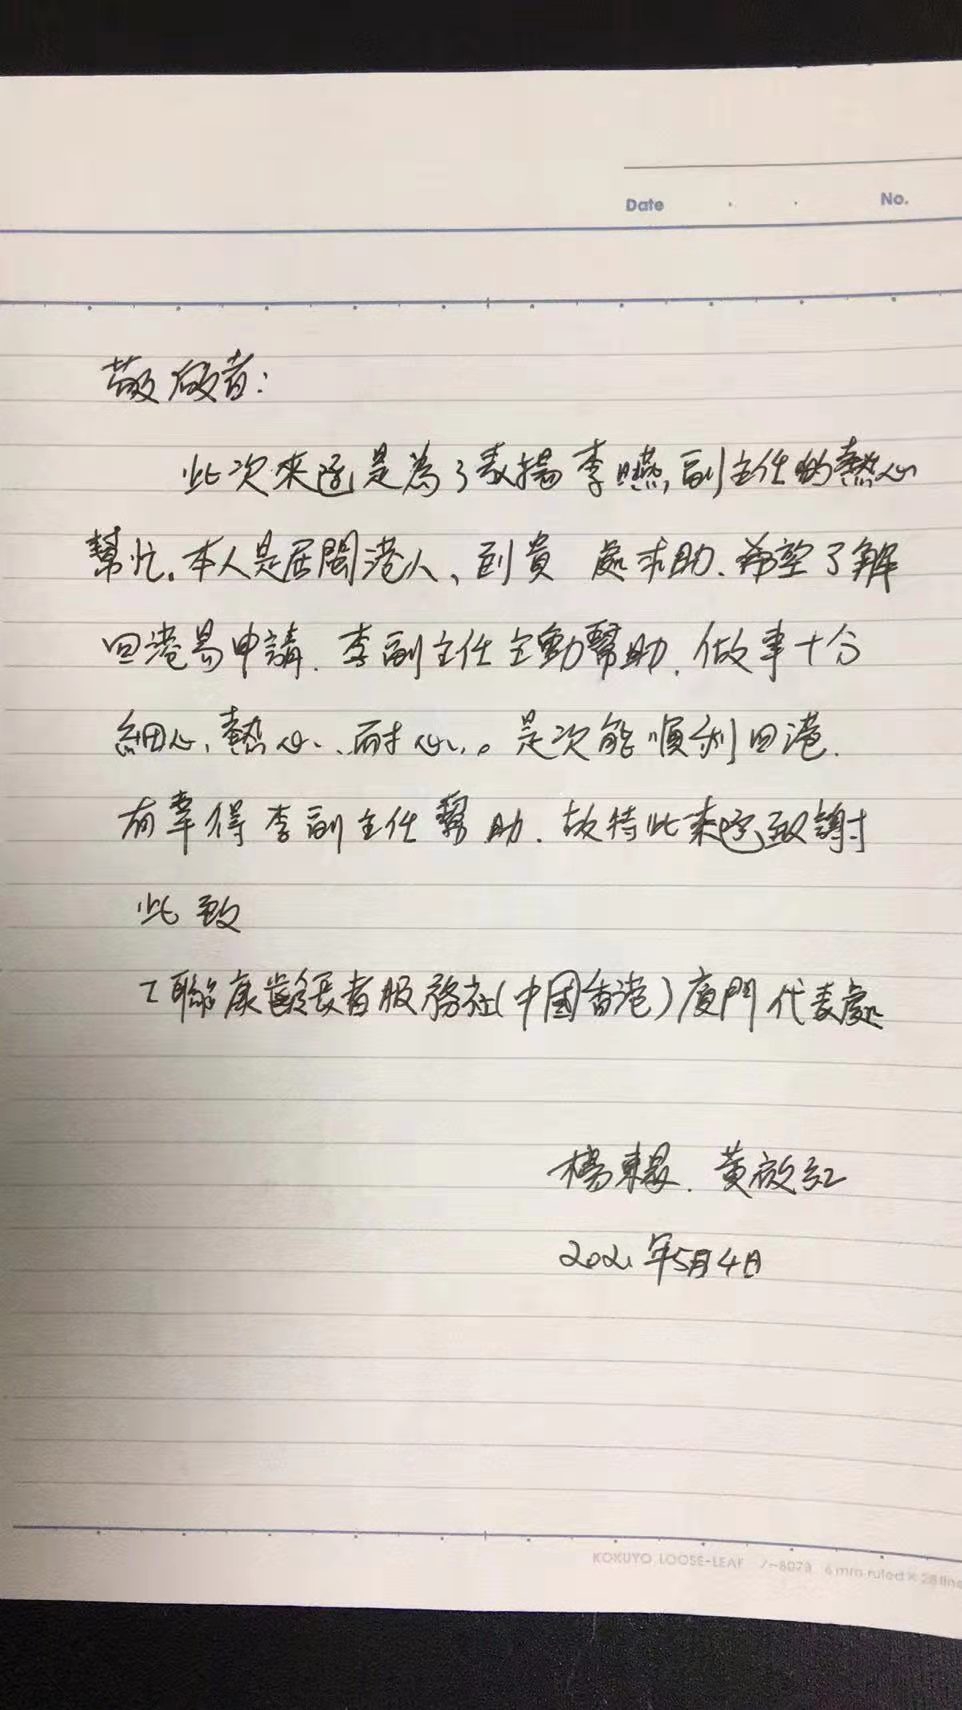 Date . . No.
敬啟者：
此次來函是為了表揚李曣副主任的熱心
幫忙。本人是居閩港人、到貴 處求助、希望了解
回港易申請、李副主任主動幫助、做事十分
細心、熱心、耐心、。是次能順利回港、
有幸得李副主任幫助、故特此來函致謝
此致
工聯康齡長者服務社(中國香港)廈門代表處
楊東 、黃啟紅
2021年5月4日
KOKUYO LOOSE-LEAF ノ-807 6 mm ruled × 28 line